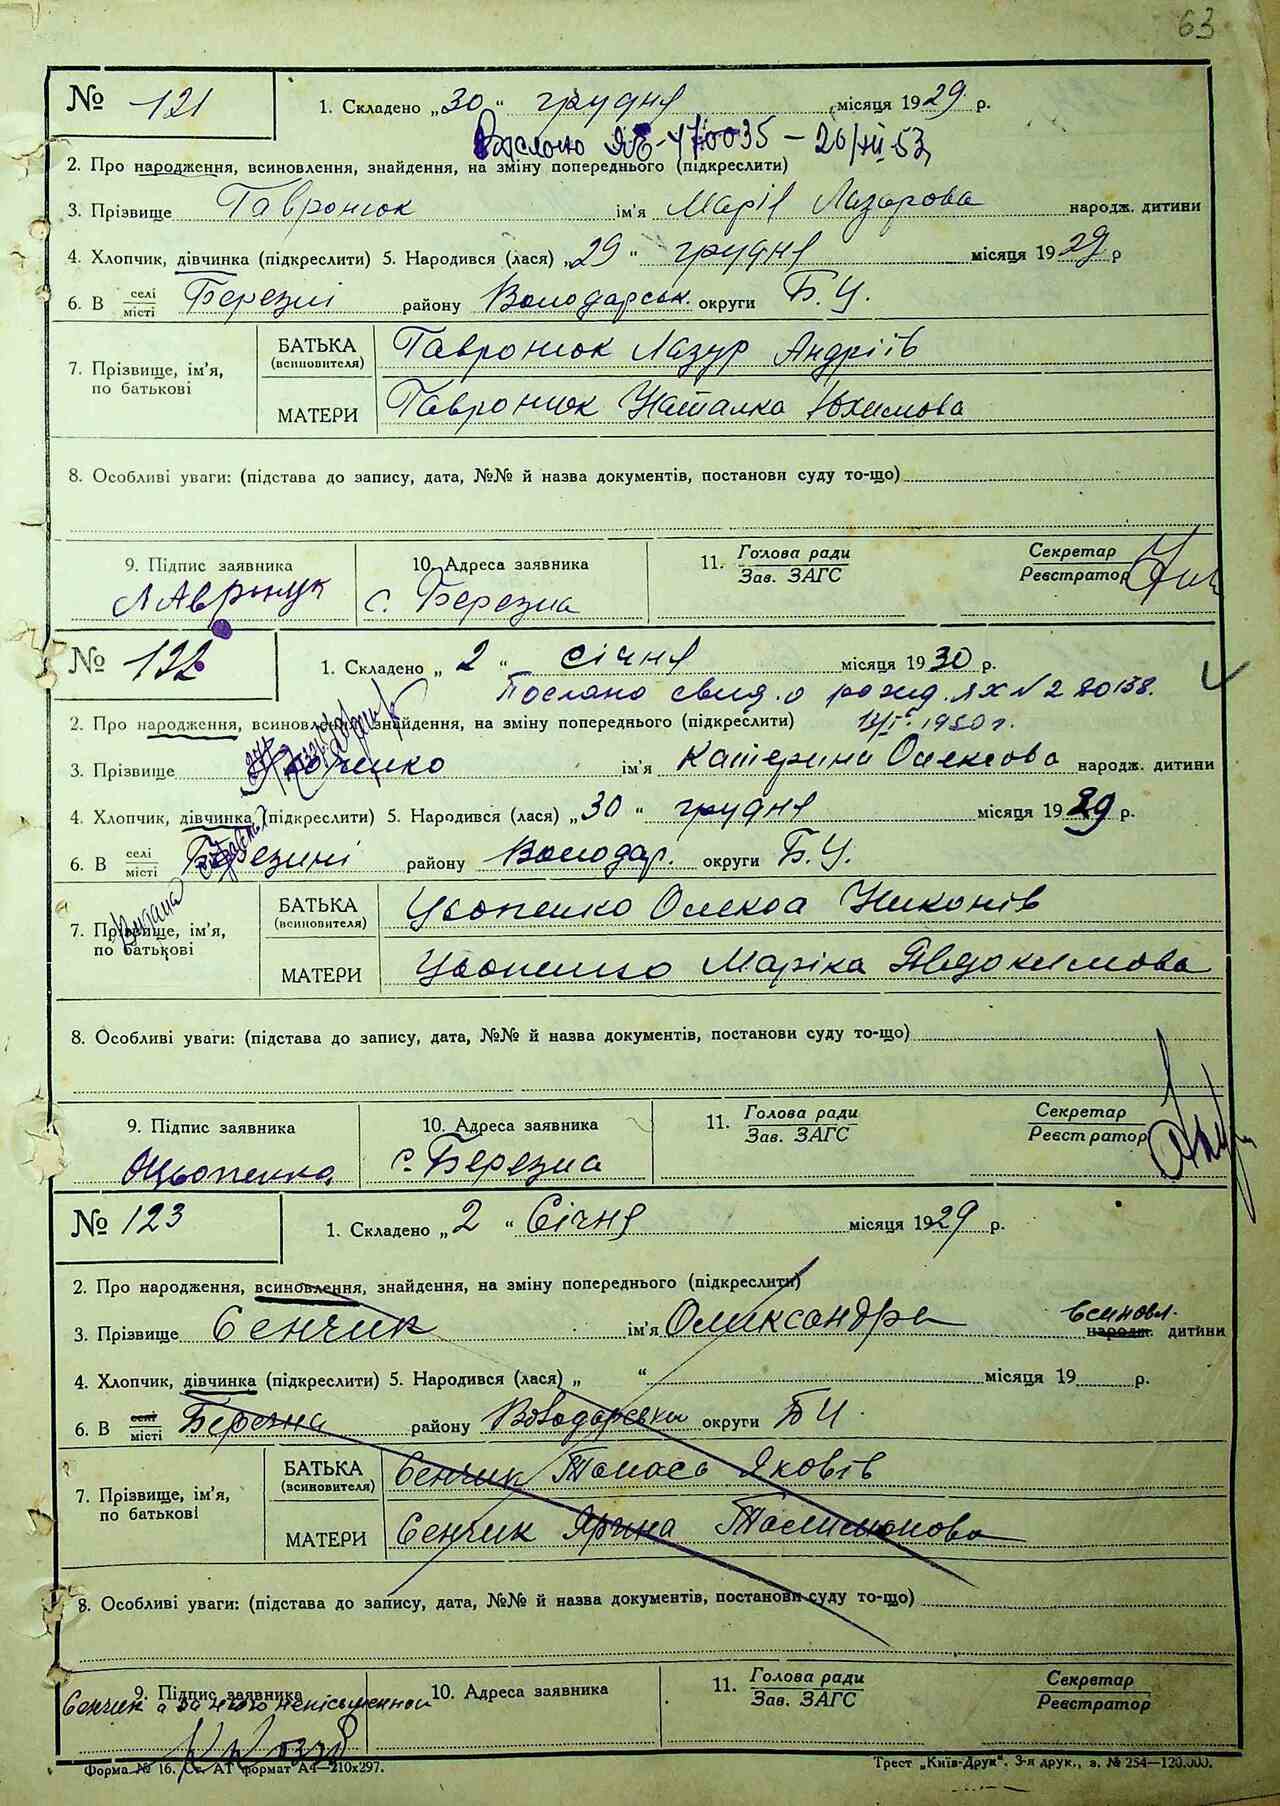 63
№ 121 1. Складено „30“ грудня місяця 1929 р.
Выслано ЯЕ-470035 - 26/XII 53
2. Про народження, всиновлення, знайдення, на зміну попереднього (підкреслити)
3. Прізвище Гавронюк ім'я Марія Лазарова народж. дитини
4. Хлопчик, дівчинка (підкреслити) 5. Народився (лася) „29“ грудня місяця 1929 р
6. В селі місті Березні району Володарськ. округи Б.Ц.
7. Прізвище, ім'я, по батькові БАТЬКА (всиновителя) Гавронюк Лазур Андріїв
МАТЕРИ Гавронюк Наталка Юхимова
8. Особливі уваги: (підстава до запису, дата, №№ й назва документів, постанови суду то-що)
9. Підпис заявника 10. Адреса заявника 11. Голова ради Зав. ЗАГС Секретар Реєстратор
с. Березна
№ 122 1. Складено „2“ січня місяця 1930 р.
Послано свид. о рожд. ЯХ № 280138.
2. Про народження, всиновлення, знайдення, на зміну попереднього (підкреслити) 12/I 1950 г.
3. Прізвище ім'я Катерина Олексова народж. дитини
4. Хлопчик, дівчинка (підкреслити) 5. Народився (лася) „30“ грудня місяця 1929 р.
6. В селі місті Березні району Володар. округи Б.Ц.
7. Прізвище, ім'я, по батькові БАТЬКА (всиновителя) Цьопенко Олекса Никонів
МАТЕРИ Цьопенко Маріка Явдокимова
8. Особливі уваги: (підстава до запису, дата, №№ й назва документів, постанови суду то-що)
9. Підпис заявника 10. Адреса заявника 11. Голова ради Зав. ЗАГС Секретар Реєстратор
Оцьопенко с. Березна
№ 123 1. Складено „2“ Січня місяця 1929 р.
2. Про народження, всиновлення, знайдення, на зміну попереднього (підкреслити)
3. Прізвище Сенчик ім'я Олександра всиновл. народж. дитини
4. Хлопчик, дівчинка (підкреслити) 5. Народився (лася) „ “ місяця 19 р.
6. В селі місті Березна району Володарськи округи Б Ц.
7. Прізвище, ім'я, по батькові БАТЬКА (всиновителя) Сенчик Томась Яковів
МАТЕРИ Сенчик Ярина Талимонова
8. Особливі уваги: (підстава до запису, дата, №№ й назва документів, постанови суду то-що)
9. Підпис заявника 10. Адреса заявника 11. Голова ради Зав. ЗАГС Секретар Реєстратор
Сенчик а за його неписьменной
Форма № 16. Ст. АТ формат А4—210x297. Трест „Київ-Друк“. 3-я друк., з. № 254—120.000.